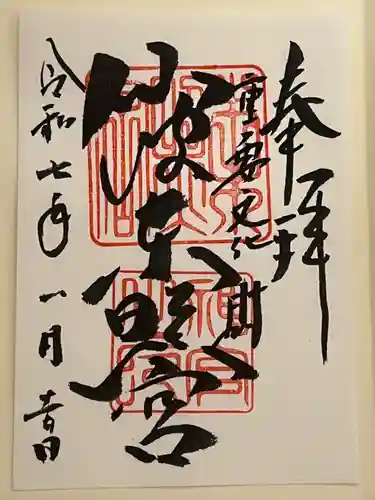 奉拝
重要文化財
仙波東照宮
令和七年八月吉日